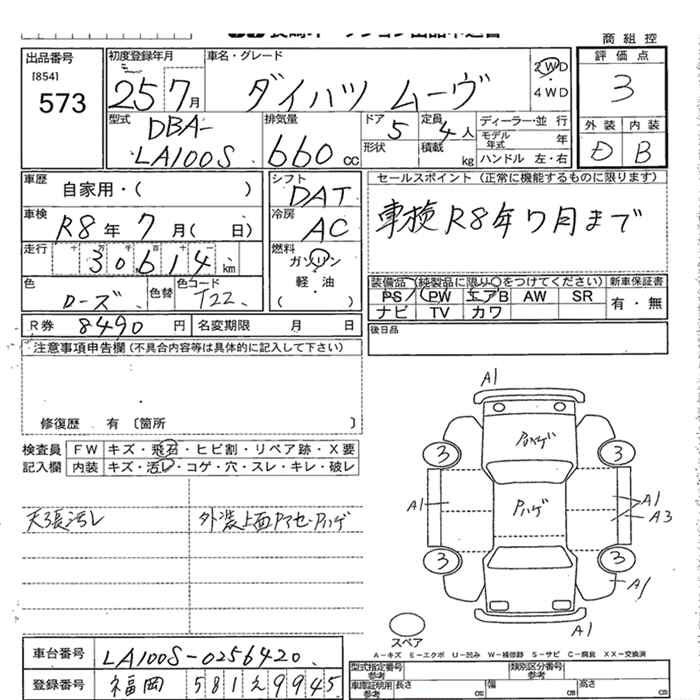 商組控
出品番号
[854]
573
初度登録年月
25 7月
車名・グレード
ダイハツ ムーヴ
2WD
4WD
評価点
3
外装 内装
D B
型式
DBA-
LA100S
排気量
660 cc
ドア
5
形状
定員
4人
積載
kg
ディーラー・並行
モデル年式 年
ハンドル 左・右
車歴
自家用・( )
車検
R8年 7月( 日)
走行
十 万 千 百 十 一
30614 km
色
ローズ
色替
色コード
T22
シフト
DAT
冷房
AC
燃料
ガソリン
軽・油
( )
セールスポイント (正常に機能するものに限ります)
車検R8年7月まで
装備品(純製品に限り○をつけてください)
新車保証書
PS PW エアB AW SR
ナビ TV カワ
有・無
後日品
R券 8490 円
名変期限 月 日
注意事項申告欄(不具合内容等は具体的に記入して下さい)
修復歴 有〔箇所 〕
検査員
記入欄
FW キズ・飛石・ヒビ割・リペア跡・X要
内装 キズ・汚レ・コゲ・穴・スレ・キレ・破レ
天張汚レ
外装上面Pアセ・Pハゲ
A1
Pハゲ
3 3
A1
Pハゲ
A1
A3
3 3
A1
A1
スペア
A-キズ E-エクボ U-凹み W-補修跡 S-サビ C-腐食 XX-交換済
車台番号
LA100S-0256420
登録番号
福岡 581え9945
型式指定番号
参考
類別区分番号
参考
車庫証明用
参考
長さ cm
幅 cm
高さ cm